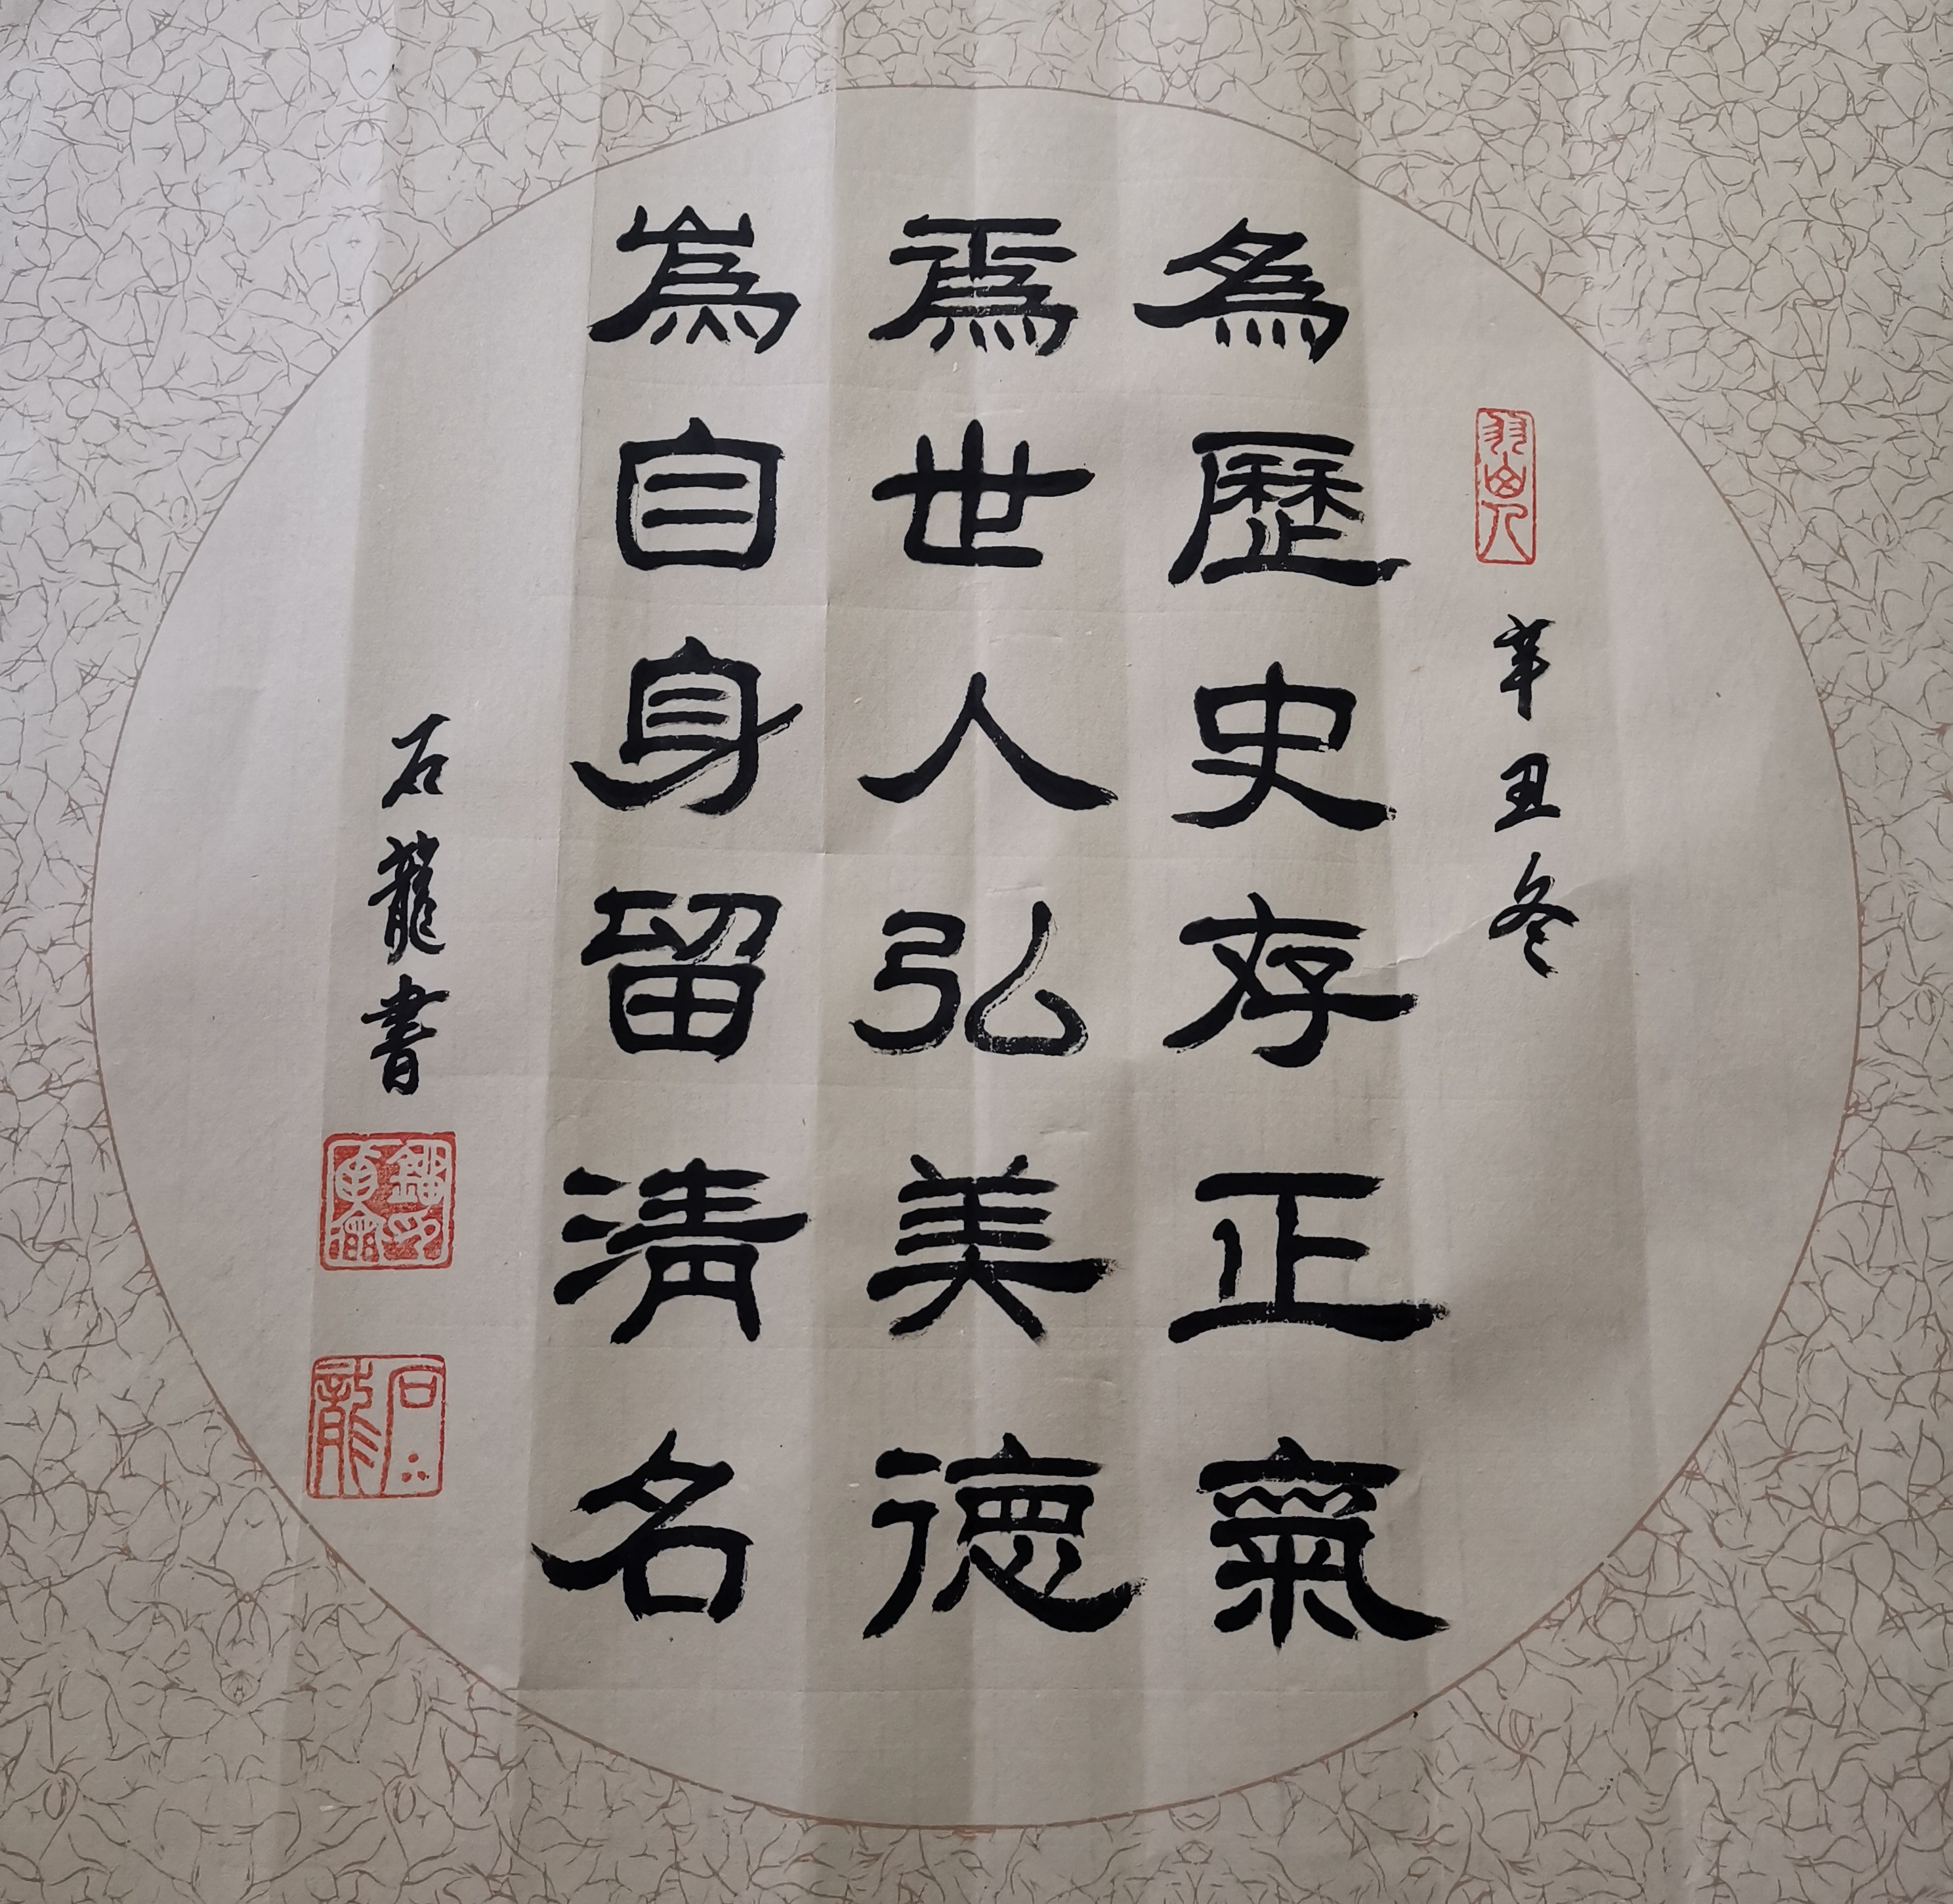 辛丑冬
為歷史存正氣
為世人弘美德
為自身留清名
石龍書
石龍